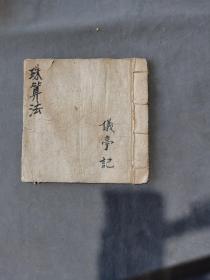 珠算法
儀亭記